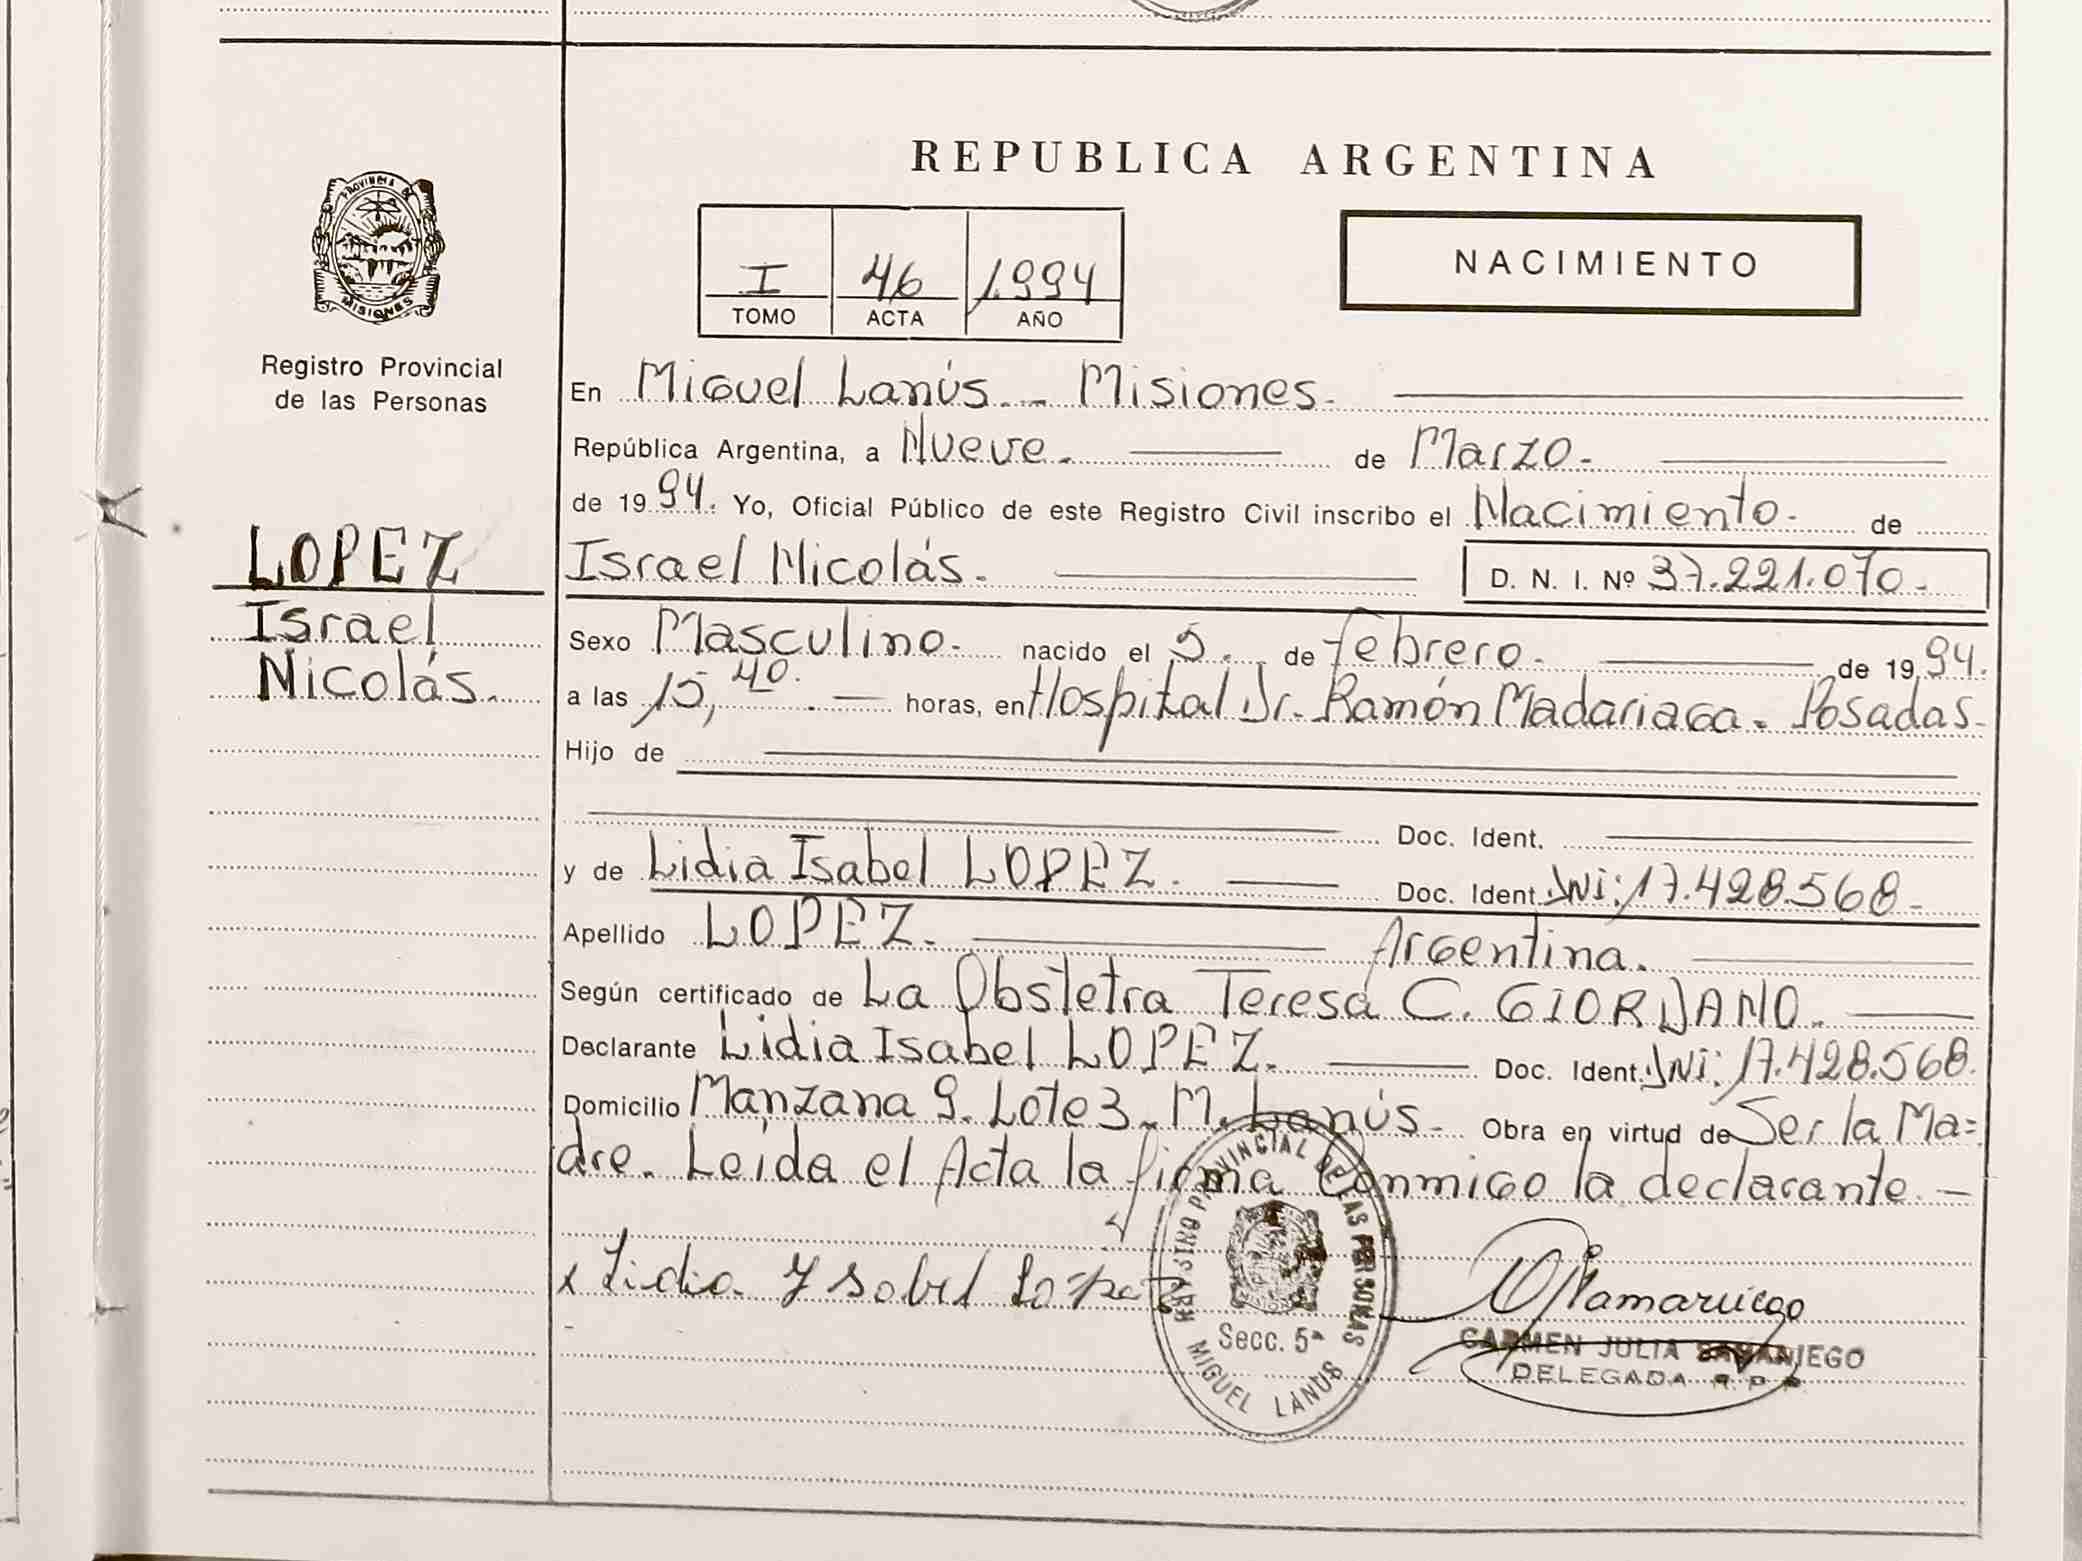 REPUBLICA ARGENTINA
PROVINCIA DE
MISIONES
Registro Provincial
de las Personas
LOPEZ
Israel
Nicolás.
I 46 1994
TOMO ACTA AÑO
NACIMIENTO
En Miguel Lanús - Misiones.
República Argentina, a Nueve. de Marzo.
de 1994. Yo, Oficial Público de este Registro Civil inscribo el Nacimiento. de
Israel Nicolás. D. N. I. Nº 37.221.070.
Sexo Masculino. nacido el 5. de febrero. de 1994.
a las 15,40. horas, en Hospital Dr. Ramón Madariaga. Posadas.
Hijo de
Doc. Ident.
y de Lidia Isabel LOPEZ. Doc. Ident. DNI: 17.428.568.
Apellido LOPEZ. Argentina.
Según certificado de La Obstetra Teresa C. GIORDANO.
Declarante Lidia Isabel LOPEZ. Doc. Ident. DNI: 17.428.568.
Domicilio Manzana 9. Lote 3. M. Lanús. Obra en virtud de Ser la Ma=
dre. Leída el Acta la firma Conmigo la declarante.
x Lidia Ysabel Lopez
REGISTRO PROVINCIAL DE LAS PERSONAS
Secc. 5ª
MIGUEL LANUS
CARMEN JULIA SAMANIEGO
DELEGADA R P P